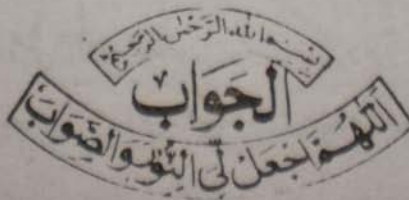 بسم الله الرحمن الرحيم
الجَوَابُ
اَللّٰهُمَّ اجْعَلْ لِّی النُّوْرَ وَالصَّوَابَ